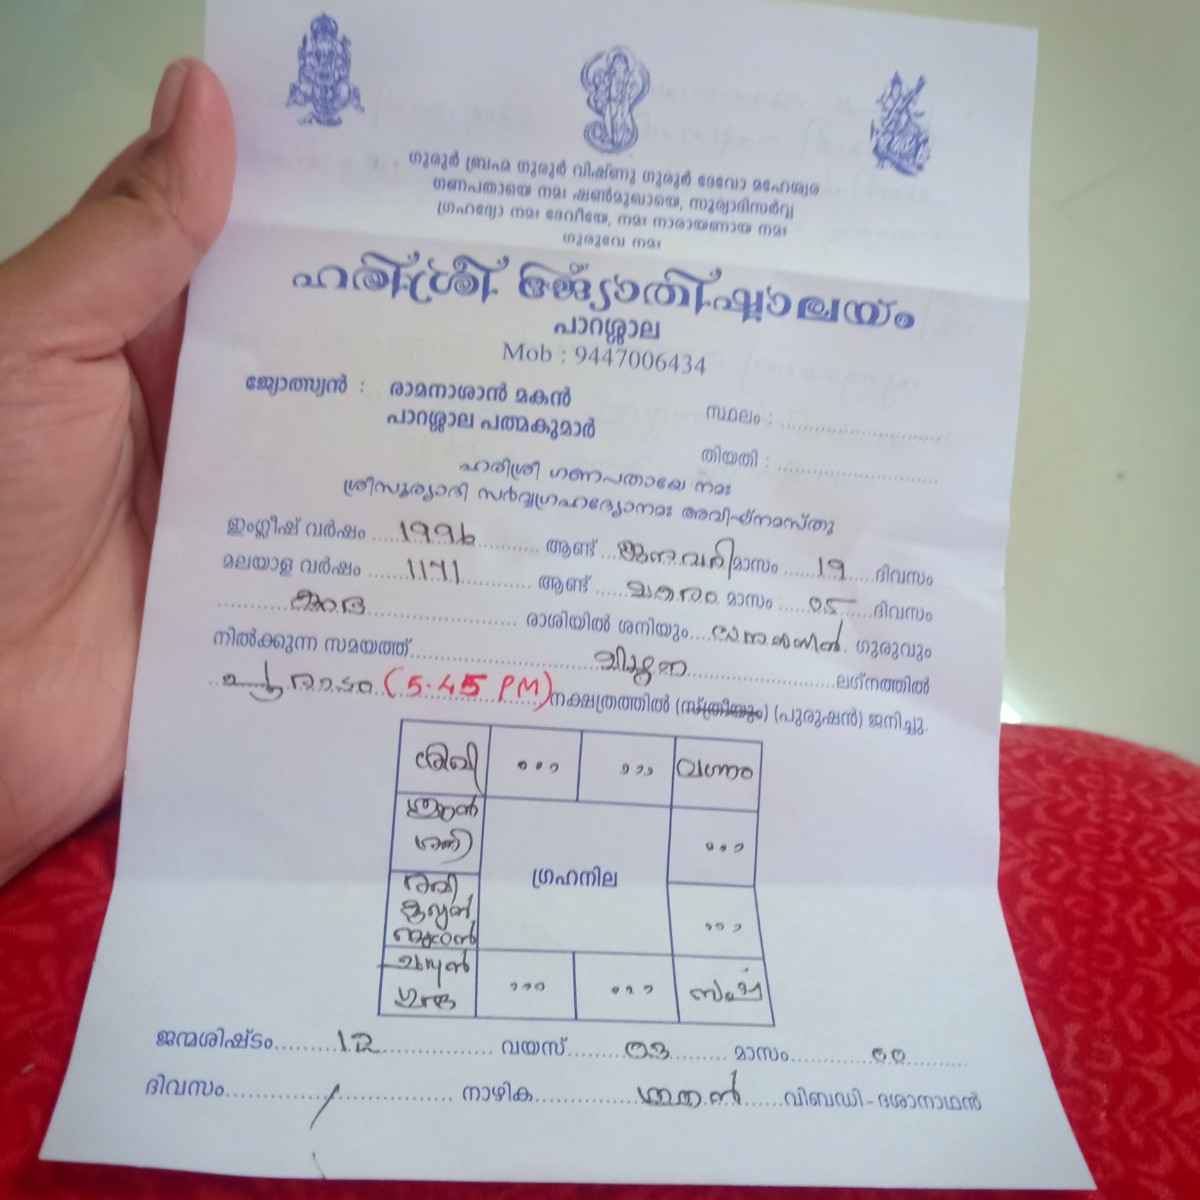 ഗുരുർ ബ്രഹ്മ ഗുരുർ വിഷ്ണു ഗുരുർ ദേവോ മഹേശ്വര
ഗണപതായെ നമഃ ഷൺമുഖായെ, സൂര്യാദിസർവ്വ
ഗ്രഹദ്യോ നമഃ ദേവീയേ, നമഃ നാരായണായ നമഃ
ഗുരുവേ നമഃ
ഹരിശ്രീ ജ്യോതിഷാലയം
പാറശ്ശാല
Mob : 9447006434
ജ്യോത്സ്യൻ : രാമനാശാൻ മകൻ
പാറശ്ശാല പത്മകുമാർ
സ്ഥലം :
തിയതി :
ഹരിശ്രീ ഗണപതായേ നമഃ
ശ്രീസൂര്യാദി സർവ്വഗ്രഹദ്യോനമഃ അവിഘ്നമസ്തു
ഇംഗ്ലീഷ് വർഷം 1996 ആണ്ട് ജനുവരി മാസം 19 ദിവസം
മലയാള വർഷം 1171 ആണ്ട് മകരം മാസം 05 ദിവസം
രാശിയിൽ ശനിയും ഗുരുവും
നിൽക്കുന്ന സമയത്ത് മിഥുന ലഗ്നത്തിൽ
പൂരാടം (5.45 PM) നക്ഷത്രത്തിൽ (സ്ത്രീയും) (പുരുഷൻ) ജനിച്ചു.
ശിഖി ഠഠഠ ഠഠഠ
ശനി ഠഠഠ
ഗ്രഹനില
രവി
ഠഠഠ
ചന്ദ്രൻ
ഗുരു ഠഠഠ ഠഠഠ
ജന്മശിഷ്ടം 12 വയസ് 03 മാസം 00
ദിവസം / നാഴിക വിബഡി - ദശാനാഥൻ